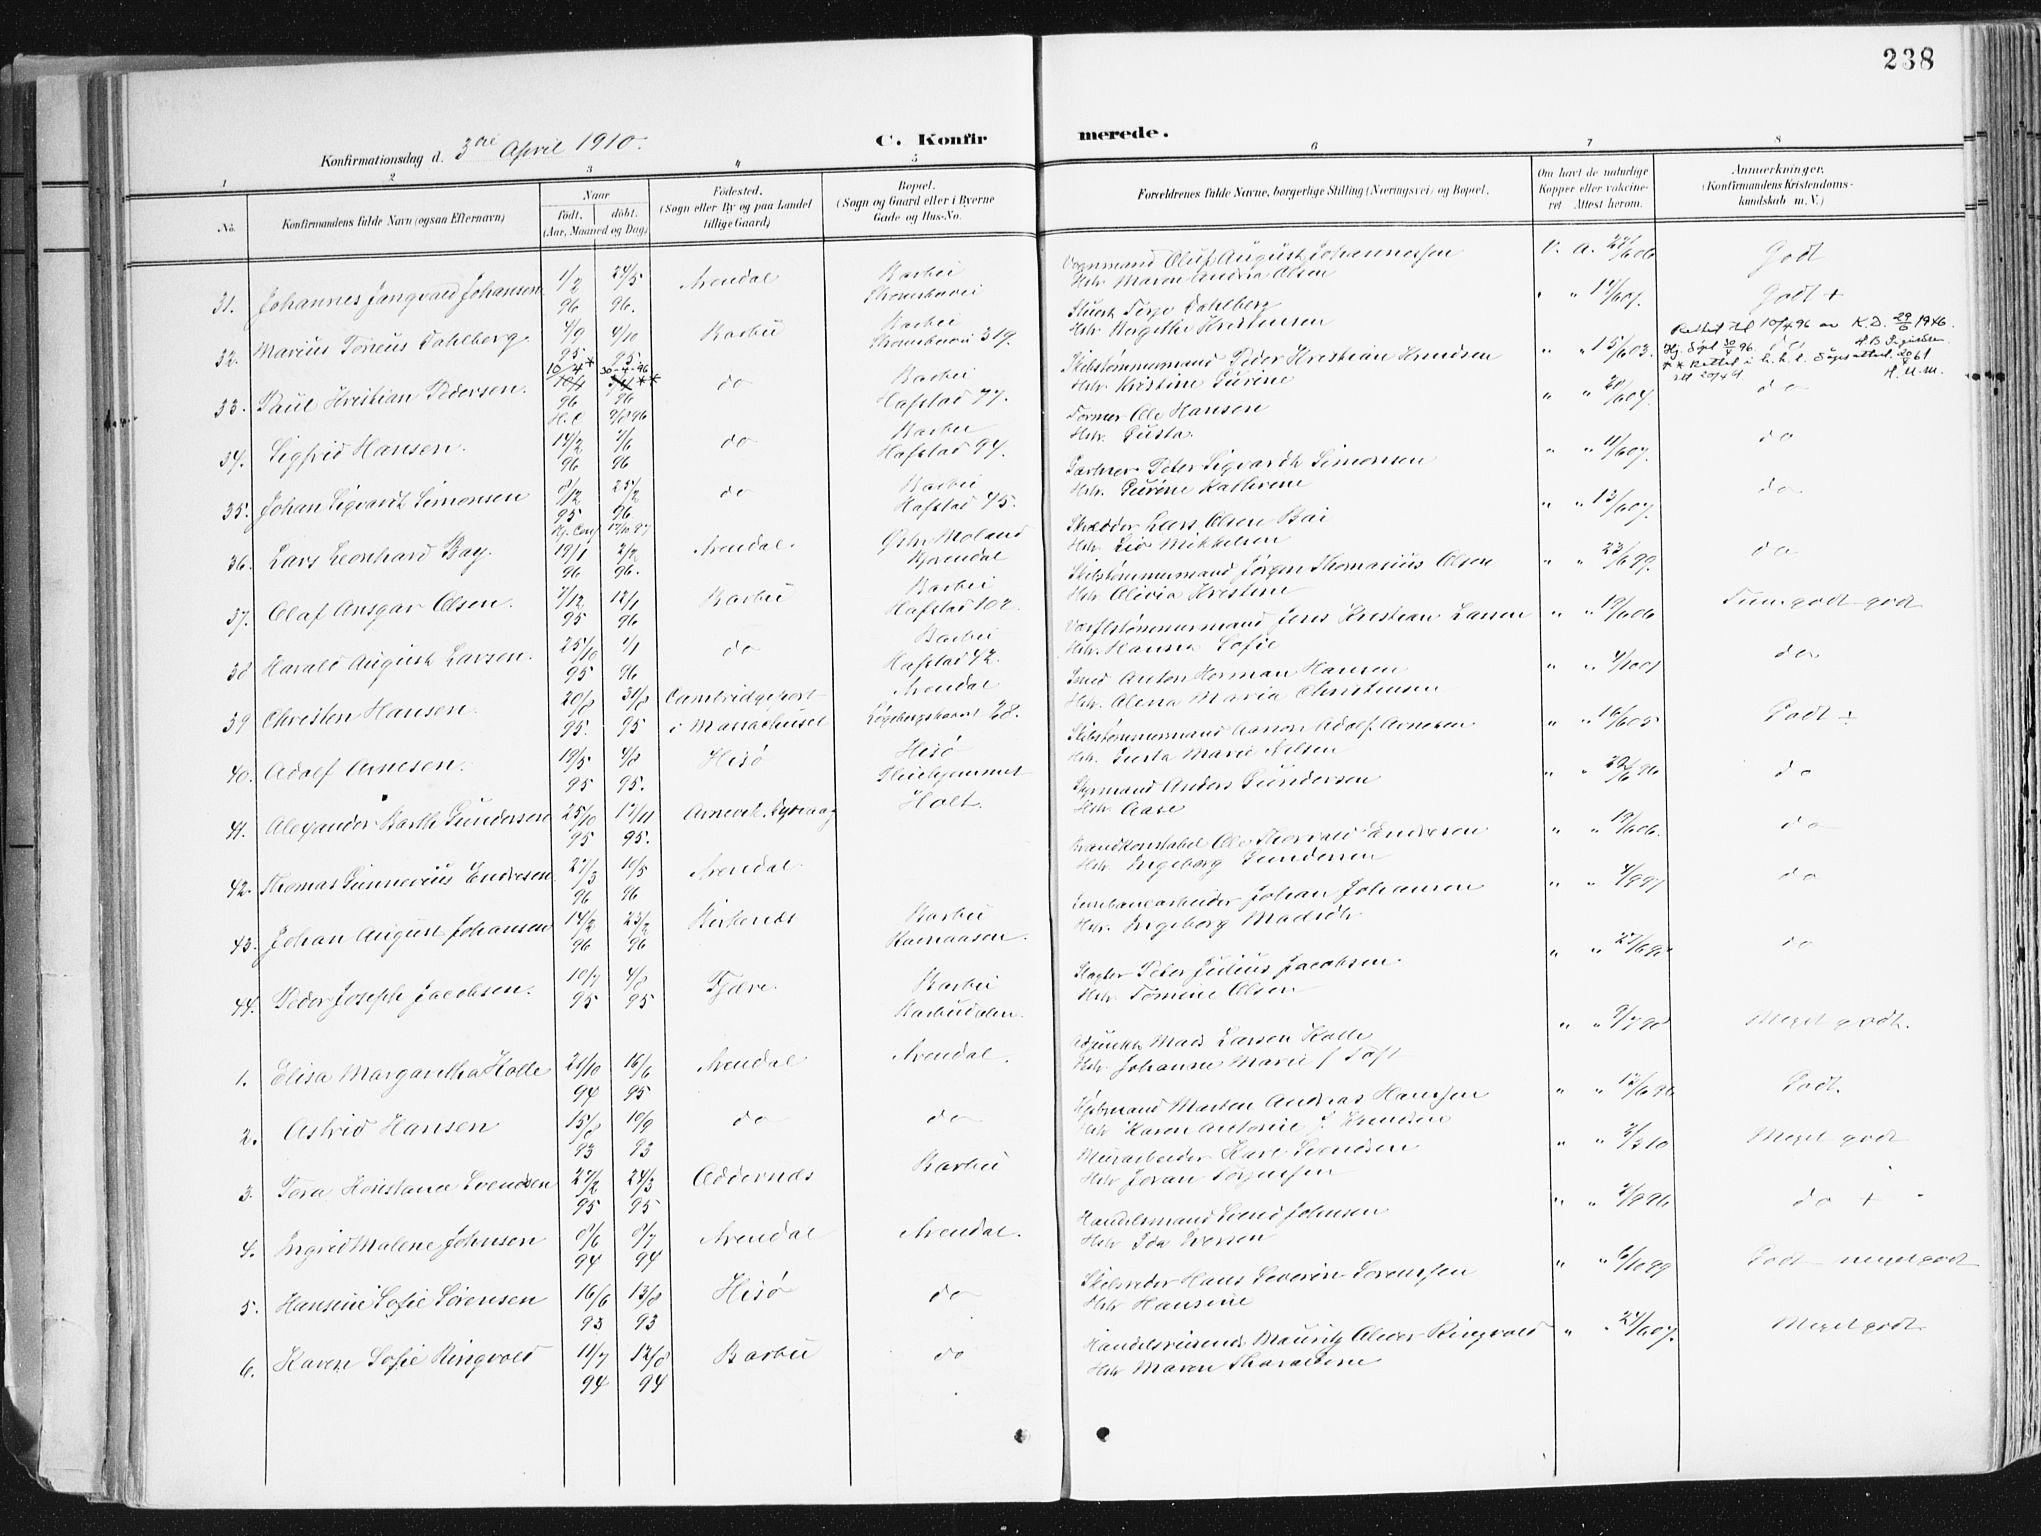 238
Konfirmationsdag d. 3die April 1910.
C. Konfirmerede.
1 2 3 4 5 6 7 8
No.
Konfirmandens fulde Navn (ogsaa Efternavn)
Naar
født, døbt.
(Aar, Maaned og Dag)
Fødested.
(Sogn eller By og paa Landet
tillige Gaard)
Bopæl.
(Sogn og Gaard eller i Byerne
Gade og Hus-No.
Forældrenes fulde Navne, borgerlige Stilling (Næringsvei) og Bopæl.
Om havt de naturlige
Kopper eller vakcine-
ret Attest herom.
Anmærkninger.
(Konfirmandens Kristendoms-
kundskab m. V.)
31. Johannes Jangvald Johansen 1/2 96 24/5 96. Arendal Barbu Strømsbuvei
Vognmand Oluf August Johannessen
Hstr Maren Andrea Olsen
v. a. 27/6 06 Godt
32. Marius Toneus Dahlberg 4/9 95 4/10 95 Barbu Barbu Strømsbuvei 319.
Stuert Terje Dahlberg
Hstr Birgitte Kristensen
" " Godt +
33. Paul Kristian Pedersen 10/4 * 96 30-4-96 ** do Barbu Hafstad 77.
Skibstømmermand Peder Kristian Knudsen
Hstr Kristine Gurine
" " 15/6 03. Rettet til 10/4 96 av K.D. 29/6 1946.
34. Sigfrid Hansen. 14/2 96 7/6 96 do Barbu Hafstad 94.
Former Ole Hansen
Hstr. Gusta.
" " do
35. Johan Sigvardt Simonsen 8/12 95 25/2 96 do Barbu Hafstad 45.
Gartner Peter Sigvardt Simonsen
Hstr. Gurine Kathrine
" " 11/6 07. do
36. Lars Leonhard Bay. 19/1 96 2/2 96. Arendal. Østre Moland Bjorendal
Skrædder Lars Olsen Bai
Hstr. Lis Mikkelsen
" " 13/6 07. do
37. Olaf Ansgar Olsen. 7/12 95 12/1 96 Barbu Barbu Hafstad 102.
Skibstømmermand Jørgen Thomasius Olsen
Hstr Olivia Kristine
" " 23/6 99. do
38 Harald August Larsen. 25/10 95 1/1 96 do Barbu Hafstad 42.
Værftstømmermand Jens Kristian Larsen
Hstr. Hanna Sofie
" " 19/6 06 Temgodt-godt
39 Christen Hansen. 20/8 95. 31/8 95 Cambridgeport i Massachuset Arendal Løgebergskaret 28.
Smed Anton Herman Hansen
Hstr. Alena Maria Christensen
" " do
40. Adolf Arnesen. 19/5 95 4/8 95. Hisø Hisø Pleiehjemmet
Skibstømmermand Aanon Adolf Arnesen
Hstr. Gusta Marie Nilsen
" " 16/6 05 Godt ÷
41. Alexander Barth Gundersen 25/10 95 17/11 95. Arnevik, Dypvaag Holt.
Styrmand Anders Gundersen
Hstr Aase
" " do
42. Thomas Gunnerius Endresen 27/3 96 10/5 96 Arendal
Brandkonstabel Ole Thorvald Endresen
Hstr. Ingeborg Gundersen
" " 19/6 06. do
43. Johan August Johansen 14/2 96 23/2 96 Birkenæs Barbu
Jernbanearbeider Johan Johansen
Hstr. Ingeborg
" " do
44. Peder Joseph Jacobsen. 10/7 95 4/8 95 Fjære. Barbu Barbudalen.
Slagter Peter Julius Jacobsen.
Hstr. Tomine Olsen
" " do
1. Elisa Margaretha Kolle 21/10 94 16/6 95 Arendal Arendal.
Adjunkt Mads Larsen Kolle
Hstr. Johanne Marie f Toft
" " 9/7 98 Meget godt.
2. Astrid Hansen 15/8 93 10/9 93 do do
Kjøbmand Morten Andreas Hanssen
Hstr Karen Antonie f. Knudsen
" " 12/6 96 Godt.
3. Tora Kristiane Svendsen 27/2 95 24/3 95 Oddernæs Barbu
Murarbeider Kare Svendsen
Hstr Joran Torjussen
" " 3/3 10 Meget godt
4. Ingrid Malene Johnsen 8/6 94 8/7 94 Arendal Arendal.
Handelsmand Svend Johnsen
Hstr Ida Iversen
" " do +
5. Hansine Sofie Sørensen 16/6 93 13/8 93 Hisø do
Skibsreder Hans Severin Sorenssen
Hstr Hansine
" " 6/10 99 Godt - megetgodt
6. Karen Sofie Ringvold 11/7 94 12/8 94 Barbu do
Handelsreisende Mauritz Oliver Ringvold
Hstr Maren Tharaldine
" " 24/6 07. Meget godt